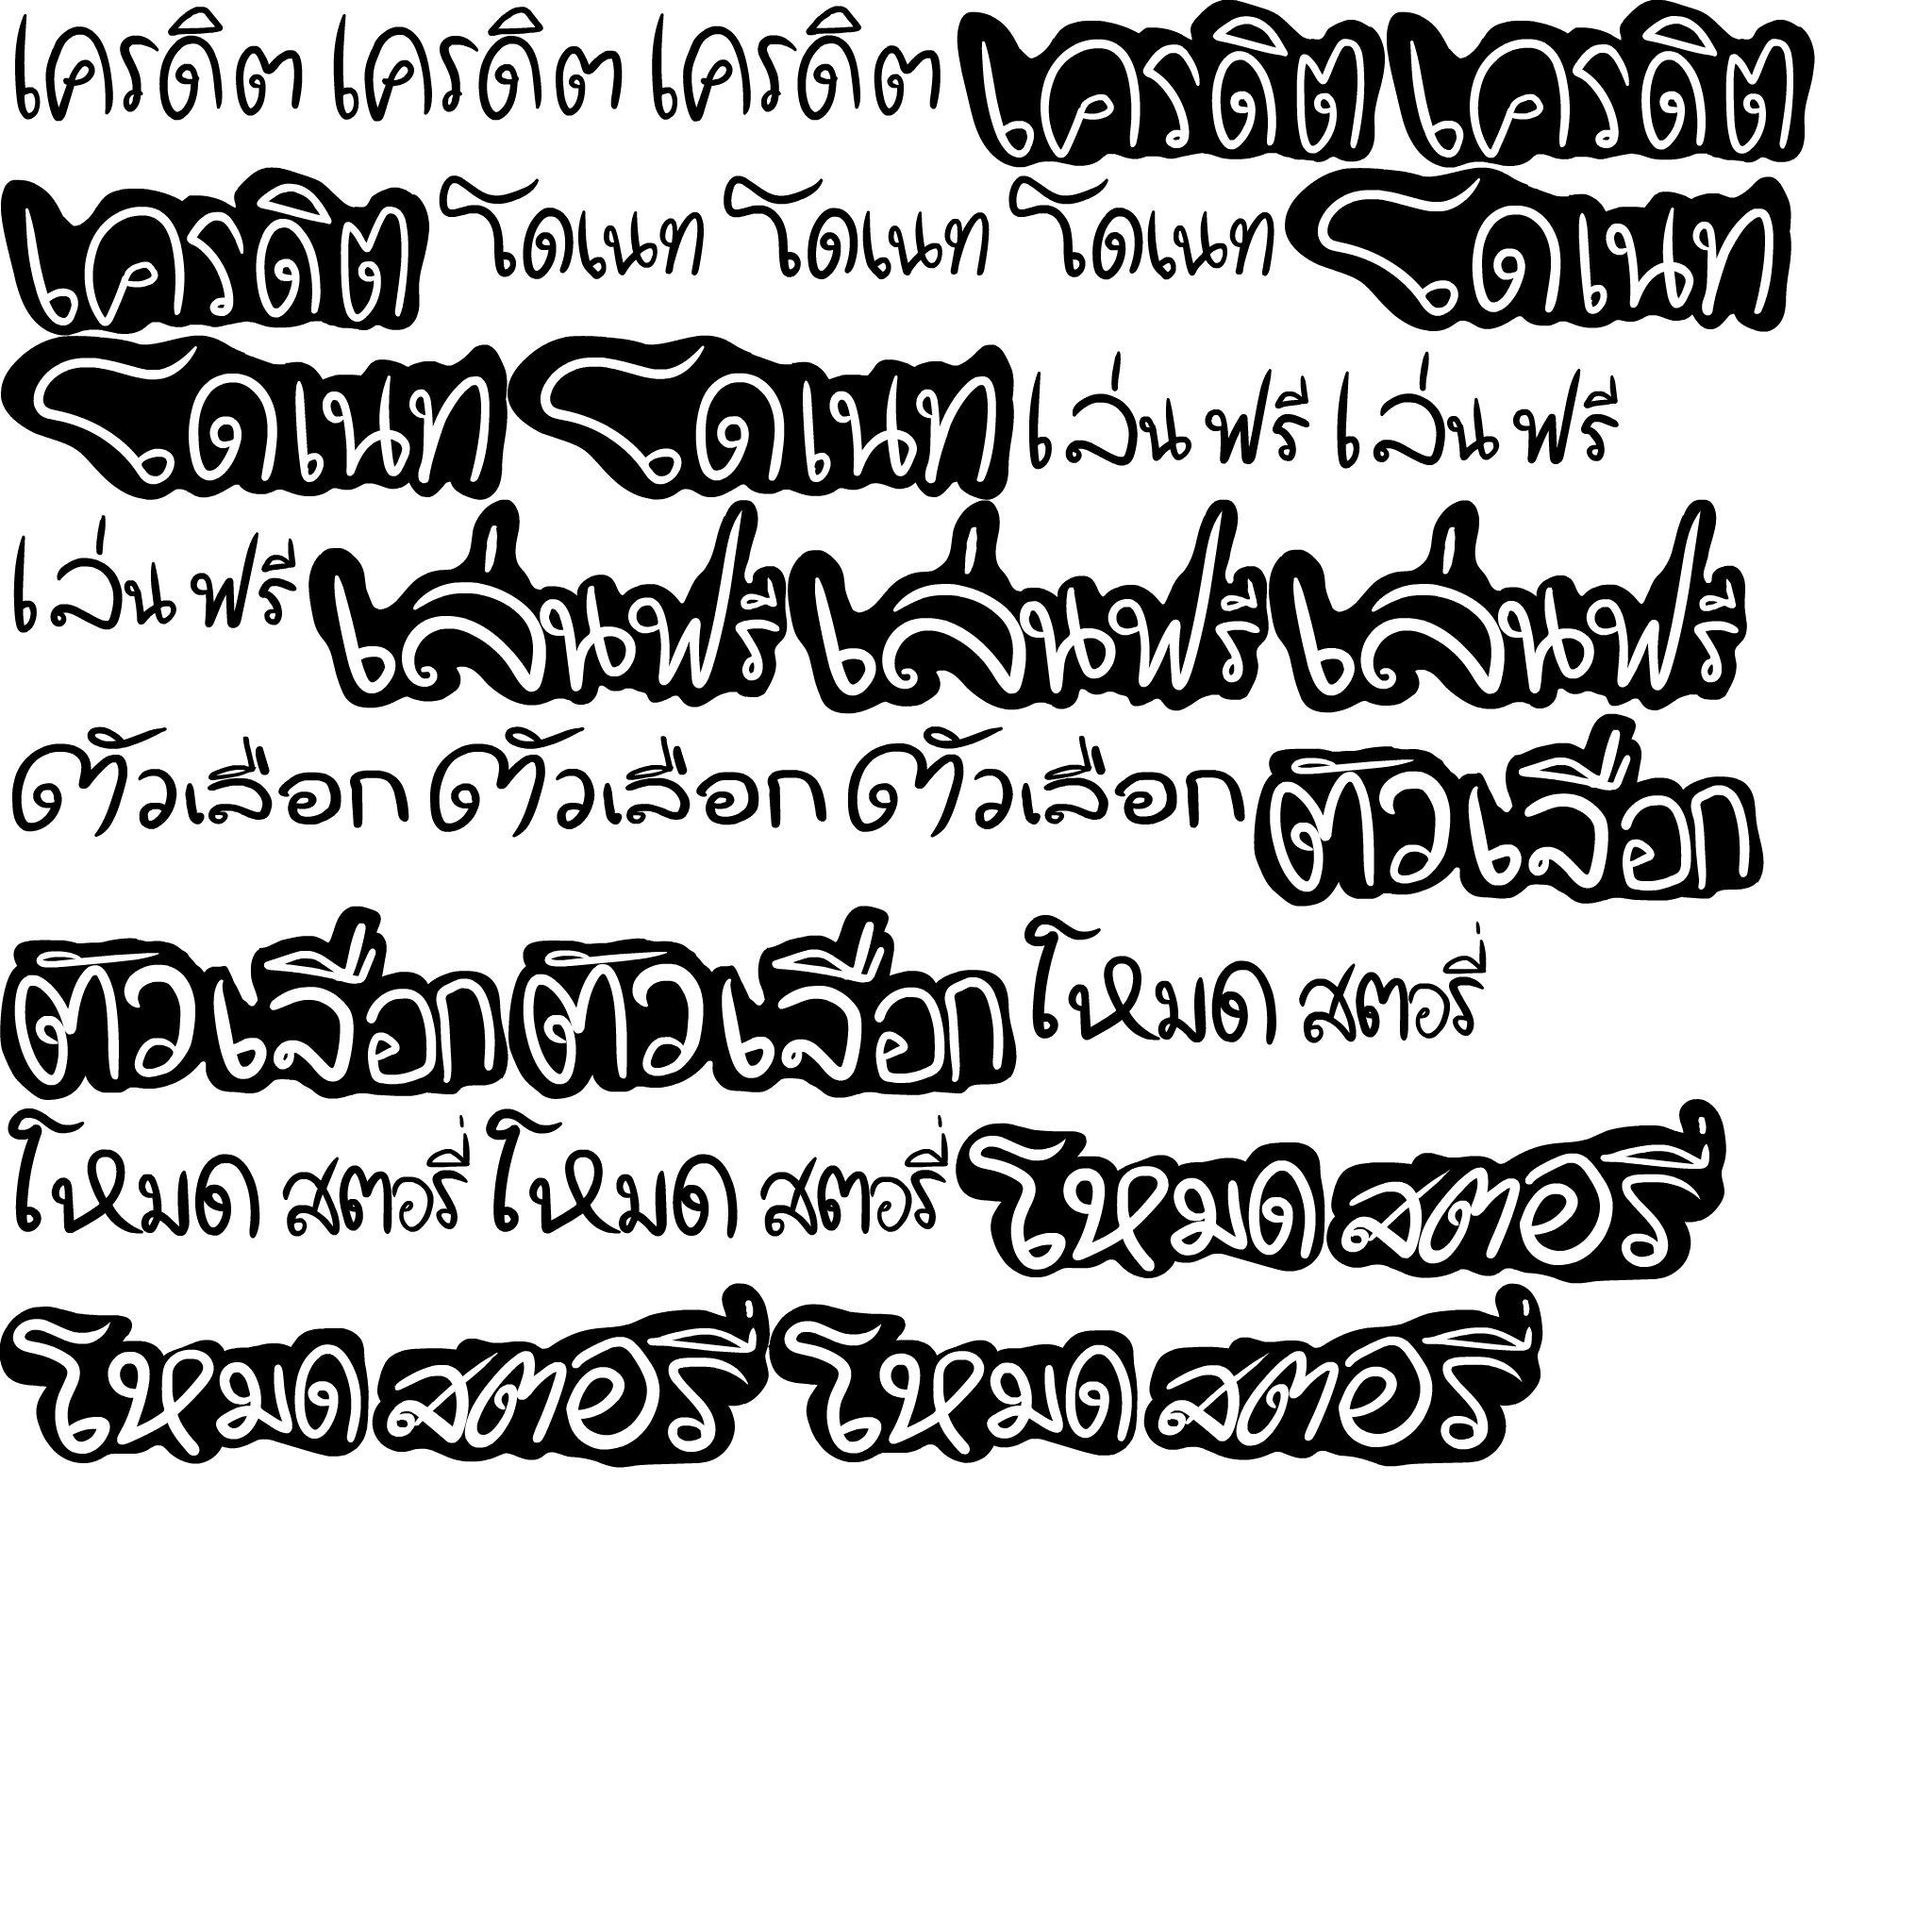 เครดิต เครดิต เครดิต เครดิต เครดิต
เครดิต โดเนท โดเนท โดเนท โดเนท
โดเนท โดเนท เล่นฟรี เล่นฟรี
เล่นฟรี เล่นฟรี เล่นฟรี เล่นฟรี
ตัวเลือก ตัวเลือก ตัวเลือก ตัวเลือก
ตัวเลือก ตัวเลือก โหมด สตอรี่
โหมด สตอรี่ โหมด สตอรี่ โหมด สตอรี่
โหมด สตอรี่ โหมด สตอรี่